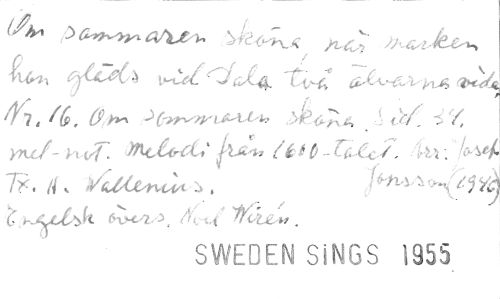 Om sommaren sköna, när marken
hon gläds vid Dala två älvarna vida,
Nr. 16. Om sommaren sköna. Sid. 34.
mel-not. Melodi från 1600-talet. Arr. Josef
Tx. A. Wallenius. Jonsson (1946)
Engelsk övers. Noel Wirén.
SWEDEN SiNGS 1955